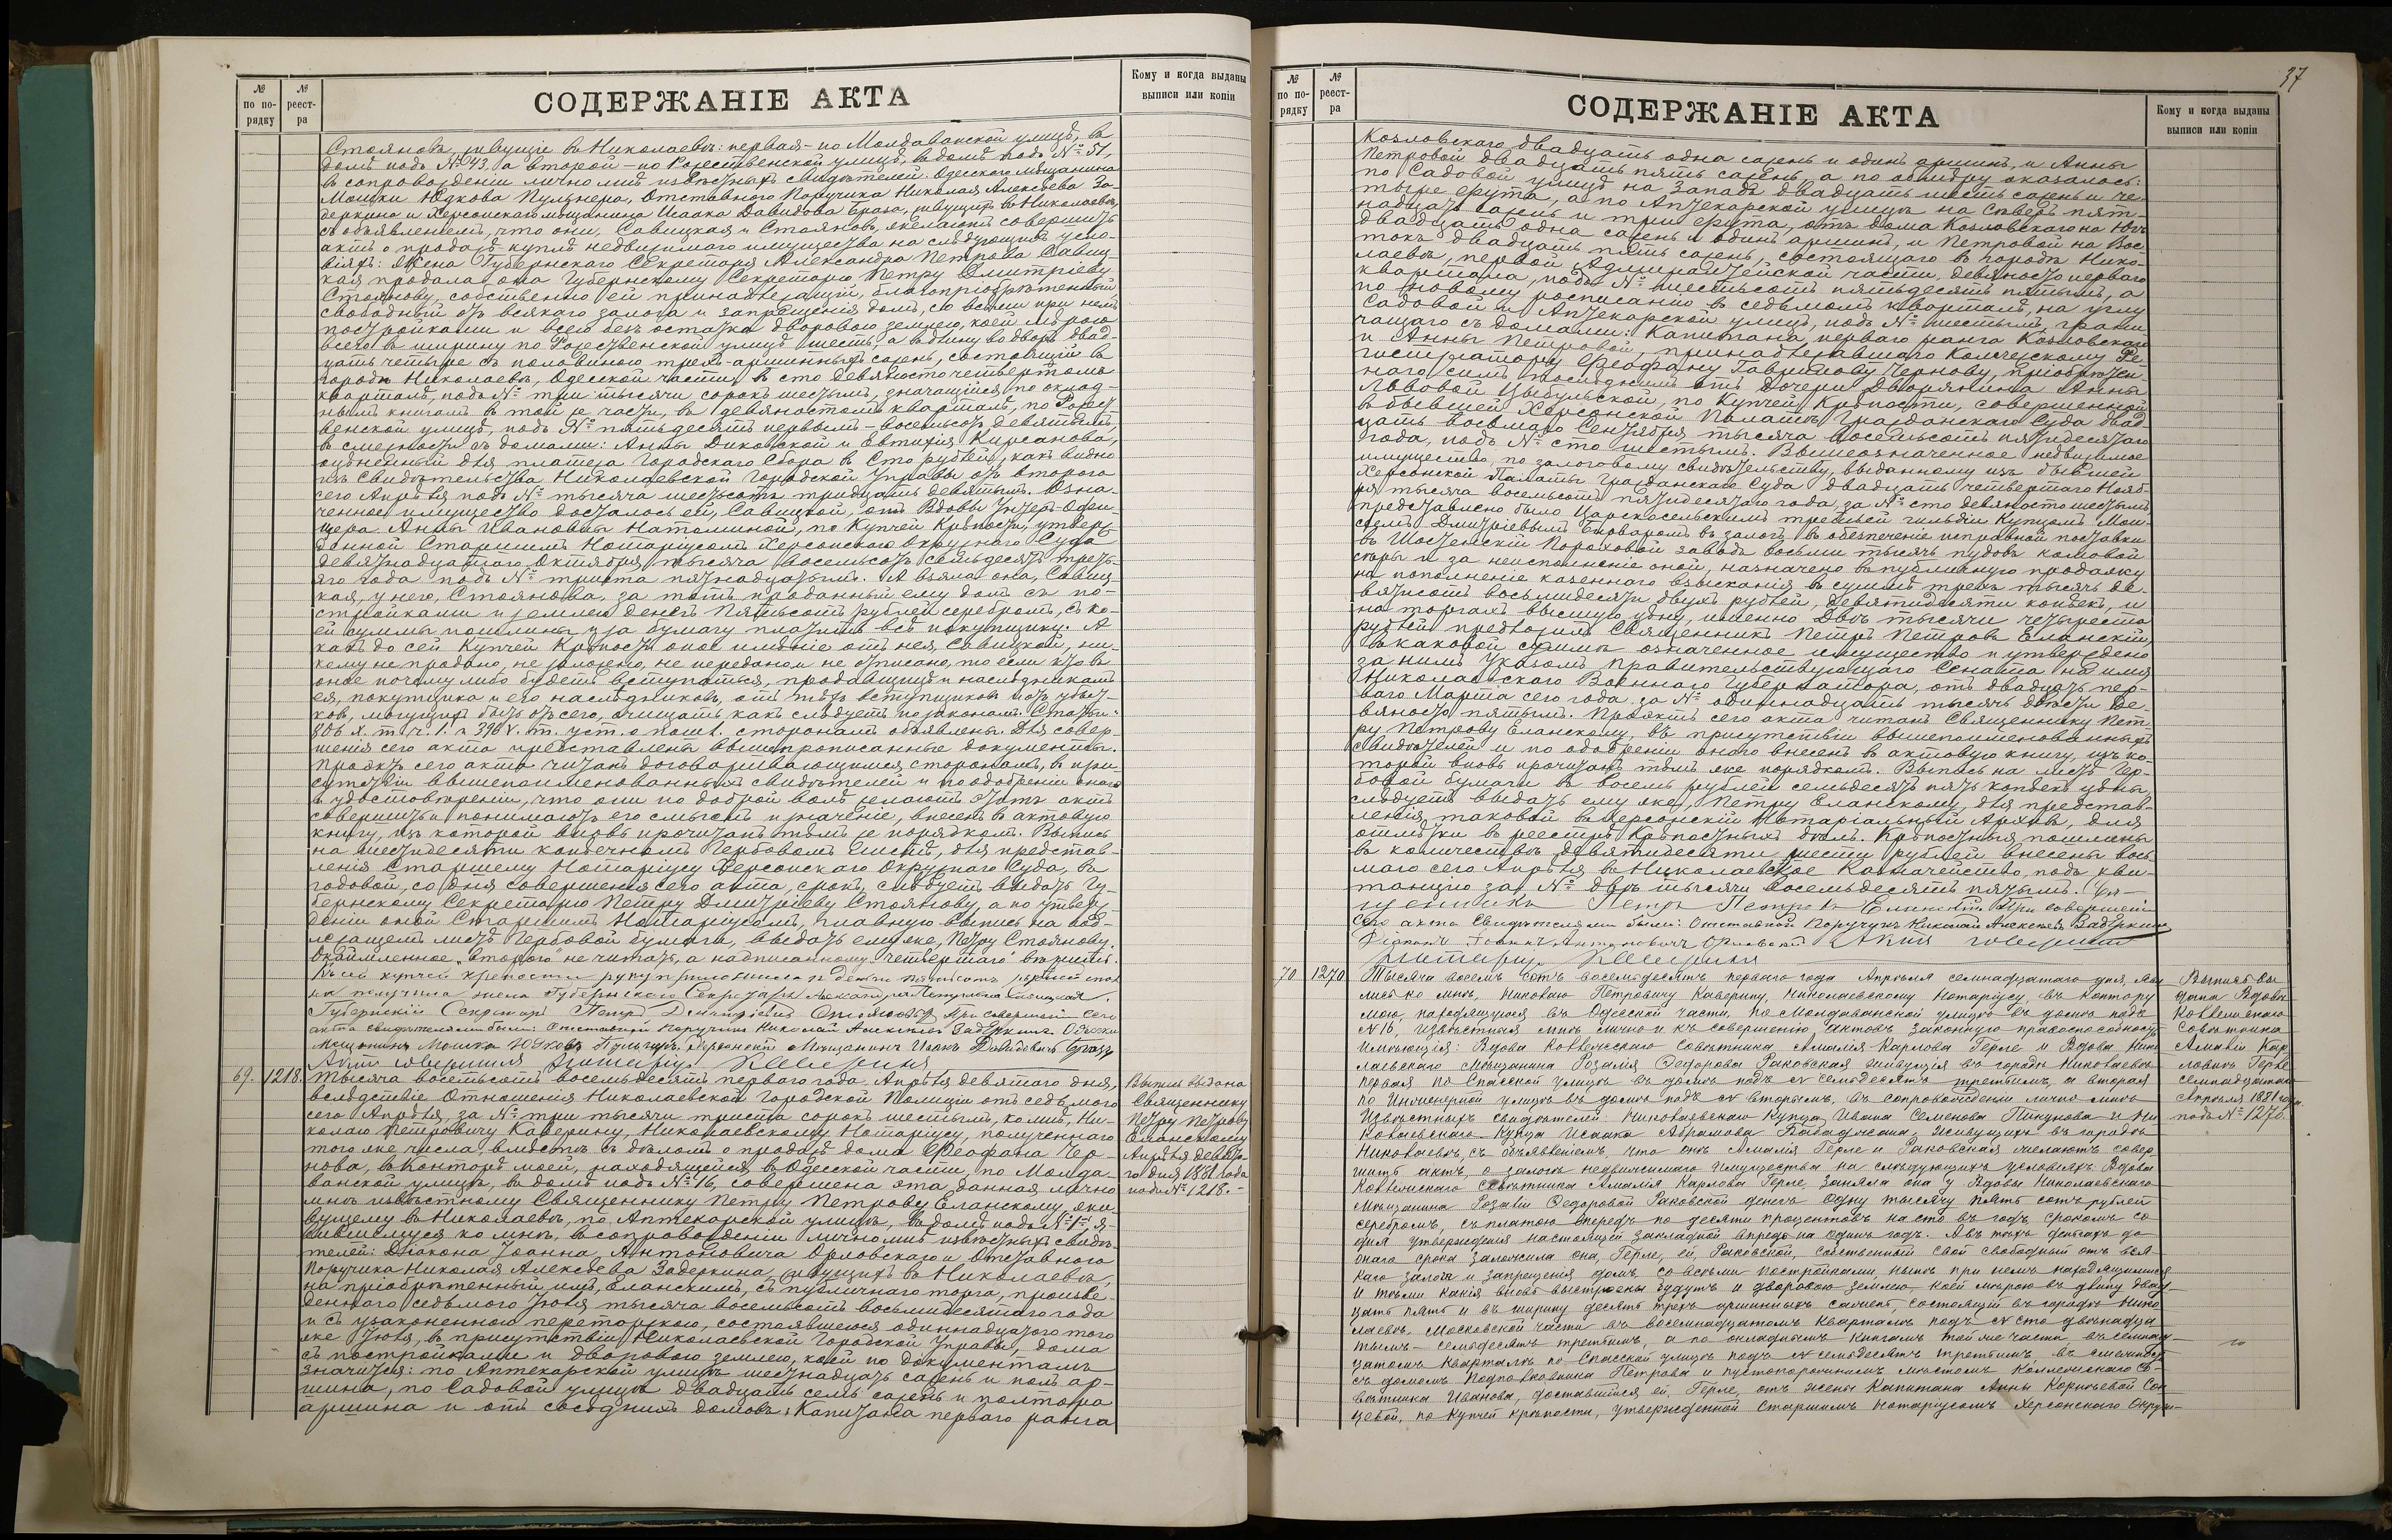 № по по-рядку
№ реест-ра
СОДЕРЖАНІЕ АКТА
Кому и когда выданы выписи или копіи
Стояновъ, живущіе въ Николаевѣ: первая – по Молдаванской улицѣ, въ
домѣ подъ № 43, а второй – по Рождественской улицѣ, въ домѣ подъ № 51,
въ сопровожденіи лично мнѣ извѣстныхъ свидѣтелей: Одесскаго мѣщанина
Мошки Юдкова Пульнера, Отставнаго Поручика Николая Алексѣева За-
деркина и Херсонскаго мѣщанина Исаака Давидова Браза, живущихъ въ Николаевѣ,
съ объявленіемъ, что они, Савицкая и Стояновъ, желаютъ совершить
актъ о продажѣ-куплѣ недвижимаго имущества на слѣдующихъ усло-
віяхъ: Жена Губернскаго Секретаря Александра Петрова Савиц-
кая продала она Губернскому Секретарю Петру Дмитріеву
Стоянову, собственно ей принадлежащій, благопріобрѣтенный
свободный отъ всякаго залога и запрещенія домъ, со всѣми при немъ
постройками и всею безъ остатка дворовою землею, коей мѣрою
всего въ ширину по Рождественской улицѣ шесть, а въ длину во дворъ двад-
цать четыре съ половиною трехъ-аршинныхъ сажень, состоящій въ
городѣ Николаевѣ, Одесской части, въ сто девяносто четвертомъ
кварталѣ, подъ № три тысячи сорокъ шестымъ, значащійся по оклад-
нымъ книгамъ въ той же части, въ девяностомъ кварталѣ, по Рождест-
венской улицѣ, подъ № пятьдесятъ первымъ – восемьсотъ девятымъ,
въ смежности съ домами: Анны Диковской и Евтихія Кирсанова,
оцѣненный для платежа Городскаго Сбора въ Сто рублей, какъ видно
изъ Свидѣтельства Николаевской Городской Управы отъ второго
сего Апрѣля подъ № тысяча шестьсотъ тридцать девятымъ. Озна-
ченное имущество досталось ей, Савицкой, отъ Вдовы Унтеръ-Офи-
цера Анны Ивановны Наталиной, по Купчей Крѣпости, утверж-
денной Старшимъ Нотаріусомъ Херсонскаго Окружнаго Суда
девятнадцатаго Октября тысяча восемьсотъ семьдесятъ треть-
яго года подъ № триста пятнадцатымъ. А взяла она, Савиц-
кая, у него, Стоянова, за тотъ проданный ему домъ съ по-
стройками и землею денегъ Пятьсотъ рублей серебромъ, съ ко-
ей суммы пошлины и за бумагу платитъ всѣ покупщику. А
какъ до сей Купчей Крѣпости оное имѣніе отъ нея, Савицкой, ни-
кому не продано, не заложено, не передано и не отписано, то если кто въ
оное почему либо будетъ вступаться, продавщицѣ и наслѣдникамъ
ея, покупщика и его наслѣдниковъ, отъ тѣхъ вступщиковъ и отъ убыт-
ковъ, могущихъ быть отъ сего, очищать какъ слѣдуетъ по законамъ. Статьи:
X. т. ч. 1. и 376 V. т. уст. о пошл. сторонамъ объявлены. Для совер-
шенія сего акта представлены вышепрописанные документы.
Проэктъ сего акта читанъ договаривающимся сторонамъ, въ при-
сутствіи вышепоименованныхъ свидѣтелей и по одобреніи онаго
и удостовѣреніи, что они по доброй волѣ желаютъ этотъ актъ
совершить и понимаютъ его смыслъ и значеніе, внесенъ въ актовую
книгу, изъ которой вновь прочитанъ тѣмъ же порядкомъ. Выпись
на шестидесяти копѣечномъ Гербовомъ листѣ, для представ-
ленія Старшему Нотаріусу Херсонскаго Окружнаго Суда, въ
годовой, со дня совершенія сего акта, срокъ, слѣдуетъ выдать Гу-
бернскому Секретарю Петру Дмитріеву Стоянову, а по утверж-
деніи оной Старшимъ Нотаріусомъ, главную выпись на под-
лежащемъ листѣ Гербовой бумаги, выдать ему же, Петру Стоянову.
Окаймленное „второго“ не читать, а надписанному „четвертаго“ вѣрить.
Къ сей купчей крѣпости руку приложила и деньги пятьсотъ рублей спол-
на получила жена Губернскаго Секретаря Александра Петровна Савицкая.
Губернскій Секретарь Петръ Дмитріевъ Стояновъ. При совершеніи сего
акта свидѣтелями были: Отставной Поручикъ Николай Алексѣевъ Задеркинъ. Одесскій
Мещанинъ Мошка Юдковъ Пульнеръ. Херсонскій Мѣщанинъ Исаакъ Давидовичъ Бразъ
Актъ совершилъ Нотаріусъ Каверинъ
69. 1218. Тысяча восемьсотъ восемьдесятъ первого года Апрѣля девятаго дня,
вслѣдствіе Отношенія Николаевской Городской Полиціи отъ седьмого
сего Апрѣля, за № три тысячи триста сорокъ шестымъ, ко мнѣ, Ни-
колаю Петровичу Каверину, Николаевскому Нотаріусу, полученнаго
того же числа, вмѣстѣ съ дѣломъ о продажѣ дома Феофана Чер-
нова, въ Конторѣ моей, находящейся въ Одесской части, по Молда-
ванской улицѣ, въ домѣ подъ № 16, совершена эта данная лично
мнѣ извѣстному Священнику Петру Петрову Еланскому, жи-
вущему въ Николаевѣ, по Аптекарской улицѣ, въ домѣ подъ № 1й, я-
вившемуся ко мнѣ, въ сопровожденіи лично мнѣ извѣстныхъ свидѣ-
телей: Діакона Іоанна Антоновича Орловскаго и Отставнаго
Поручика Николая Алексѣева Задеркина, живущихъ въ Николаевѣ,
на пріобрѣтенный имъ, Еланскимъ, съ публичнаго торга, произве-
деннаго седьмого Іюля тысяча восемьсотъ восьмидесятаго года
и съ узаконенною переторжкою, состоявшеюся одиннадцатого того
же Іюля, въ присутствіи Николаевской Городской Управы, дома
съ постройками и дворовою землею, коей по документамъ
значится: по Аптекарской улицѣ шестнадцать сажень и полъ ар-
шина, по Садовой улицѣ двадцать семь сажень и полтора
аршина и отъ сосѣднихъ домовъ: Капитана первого ранга
Выпись выдана
Священнику
Петру Петрову
Еланскому
Апрѣля девята-
го дня 1881 года
подъ № 1218. –
37
№ по по-рядку
№ реест-ра
СОДЕРЖАНІЕ АКТА
Кому и когда выданы выписи или копіи
Козловскаго двадцать одна сажень и одинъ аршинъ, и Анны
Петровой двадцать пять сажень, а по обмѣру оказалось:
по Садовой улицѣ на Западъ двадцать шесть сажень и че-
тыре фута, а по Аптекарской улицѣ на Сѣверъ пят-
надцать сажень и три фута, отъ дома Козловскаго на Югъ
двадцать одна сажень и одинъ аршинъ, и Петровой на Вос-
токъ двадцать пять сажень, состоящаго въ городѣ Нико-
лаевѣ, первой Адмиралтейской части, девяносто перваго
квартала, подъ № шестьсотъ пятьдесятъ пятымъ, а
по новому росписанію въ седьмомъ кварталѣ, на углу
Садовой и Аптекарской улицъ, подъ № шестымъ, грани-
чащаго съ домами: Капитана первого ранга Козловскаго
и Анны Петровой, принадлежавшаго Коллежскому Ре-
гистратору Феофану Гаврилову Чернову, пріобрѣтен-
наго симъ послѣднимъ отъ Дочери Дворянина Анны
Львовой Цыбульской, по Купчей Крѣпости, совершенной
въ бывшей Херсонской Палатѣ Гражданскаго Суда двад-
цать восьмаго Сентября тысяча восемьсотъ пятидесятаго
года, подъ № сто шестымъ. Вышеозначенное недвижимое
имущество, по залоговому свидѣтельству, выданному изъ бывшей
Херсонской Палаты Гражданскаго Суда двадцать четвертаго Нояб-
ря тысяча восемьсотъ пятидесятаго года за № сто девяносто шестымъ
представлено было Царскосельскимъ третьей гильдіи Купцомъ Мои-
сеемъ Дмитріевымъ въ залогъ въ обезпеченіе исправной поставки
въ Шостенскій Пороховой заводъ восьми тысячъ пудовъ комовой
сѣры и за неисполненіе оной, назначено въ публичную продажу
на пополненіе казеннаго взысканія въ суммѣ трехъ тысячъ де-
вятисотъ восьмидесяти двухъ рублей, девятидесяти копѣекъ, и
на торгахъ высшую цѣну, именно Двѣ тысячи четыреста
рублей предложилъ Священникъ Петръ Петровъ Еланскій,
въ каковой суммѣ означенное имущество и утверждено
за нимъ Указомъ Правительствующаго Сената на имя
Николаевскаго Военнаго Губернатора, отъ двадцать пер-
ваго Марта сего года за № одиннадцать тысячъ двѣсти де-
вяносто пятымъ. Проэктъ сего акта читанъ Священнику Пет-
ру Петрову Еланскому, въ присутствіи вышепоименованныхъ
свидѣтелей и по одобреніи онаго внесенъ въ актовую книгу, изъ ко-
торой вновь прочитанъ тѣмъ же порядкомъ. Выпись на листѣ Гер-
бовой бумаги въ восемь рублей семьдесятъ пять копѣекъ цѣны,
слѣдуетъ выдать ему же, Петру Еланскому, для представ-
ленія таковой въ Херсонскій Нотаріальный Архивъ, для
отмѣтки въ реестрѣ Крѣпостныхъ дѣлъ. Крѣпостныя пошлины
въ количествѣ девятидесяти шести рублей внесены вось-
маго сего Апрѣля въ Николаевское Казначейство, подъ кви-
танцію за № двѣ тысячи восемьдесятъ пятымъ. Свя-
щенникъ Петръ Петровъ Еланскій. При совершеніи
сего акта Свидѣтелями были: Отставной Поручикъ Николай Алексѣевъ Задеркинъ
Діаконъ Іоаннъ Антоновичъ Орловскій. Актъ совершилъ
Нотаріусъ Каверинъ
70. 1270. Тысяча восемь сотъ восемьдесятъ перваго года Апрѣля семнадцатаго дня, яви-
лись ко мнѣ, Николаю Петровичу Каверину, Николаевскому Нотаріусу, въ контору
мою, находящуюся въ Одесской части, по Молдаванской улицѣ въ домѣ подъ
№ 16, извѣстныя мнѣ лично и къ совершенію актовъ законную правоспособность
имѣющія: Вдова Коллежскаго Совѣтника Амалія Карлова Герле и Вдова Нико-
лаевскаго Мѣщанина Розалія Федорова Раковская живущія въ городѣ Николаевѣ
первая по Спасской улицѣ въ домѣ подъ № семьдесятъ третьимъ, а вторая
по Инженерной улицѣ въ домѣ подъ № вторымъ, въ сопровожденіи лично мнѣ
извѣстныхъ свидѣтелей: Николаевскаго Купца Ивана Семенова Пикунова и Ни-
колаевскаго Купца Исаака Абрамова, живущихъ въ городѣ
Николаевѣ, съ объявленіемъ, что онѣ Амалія Герле и Раковская желаютъ совер-
шить актъ, о залогѣ недвижимаго имущества на слѣдующихъ условіяхъ: Вдова
Коллежскаго Совѣтника Амалія Карлова Герле, заняла она у Вдовы Николаевскаго
Мѣщанина Розаліи Федоровой Раковской денегъ одну тысячу пять сотъ рублей
серебромъ, съ платою впередъ по десяти процентовъ на сто въ годъ, срокомъ со
дня утвержденія настоящей закладной впредь на одинъ годъ. А въ тѣхъ деньгахъ до
онаго срока заложила она, Герле, ей, Раковской, собственный свой свободный отъ вся-
каго залога и запрещенія домъ, со всѣми постройками, нынѣ при немъ находящимися
и тѣми какія вновь выстроены будутъ и дворовою землею, коей мѣрою въ длину двад-
цать пять и въ ширину десять трехъ аршинныхъ сажень, состоящій въ городѣ Нико-
лаевѣ, Московской части въ восемнадцатомъ кварталѣ подъ № сто двѣнадца-
тымъ – семьдесятъ третьимъ, а по окладнымъ книгамъ той же части, въ семнад-
цатомъ кварталѣ по Спасской улицѣ подъ № семьдесятъ третьимъ, въ смежности
съ домомъ Подполковника Петрова и пустопорожнимъ мѣстомъ Коллежскаго Со-
вѣтника Иванова, доставшійся ей, Герле, отъ жены Капитана Анны Корнѣевой
по купчей крѣпости, утвержденной Старшимъ Нотаріусомъ Херсонскаго Окруж-
Выпись вы-
дана Вдовѣ
Коллежскаго
Совѣтника
Амаліи Кар-
ловнѣ Герле
семнадцатаго
Апрѣля 1881 года
подъ № 1270.